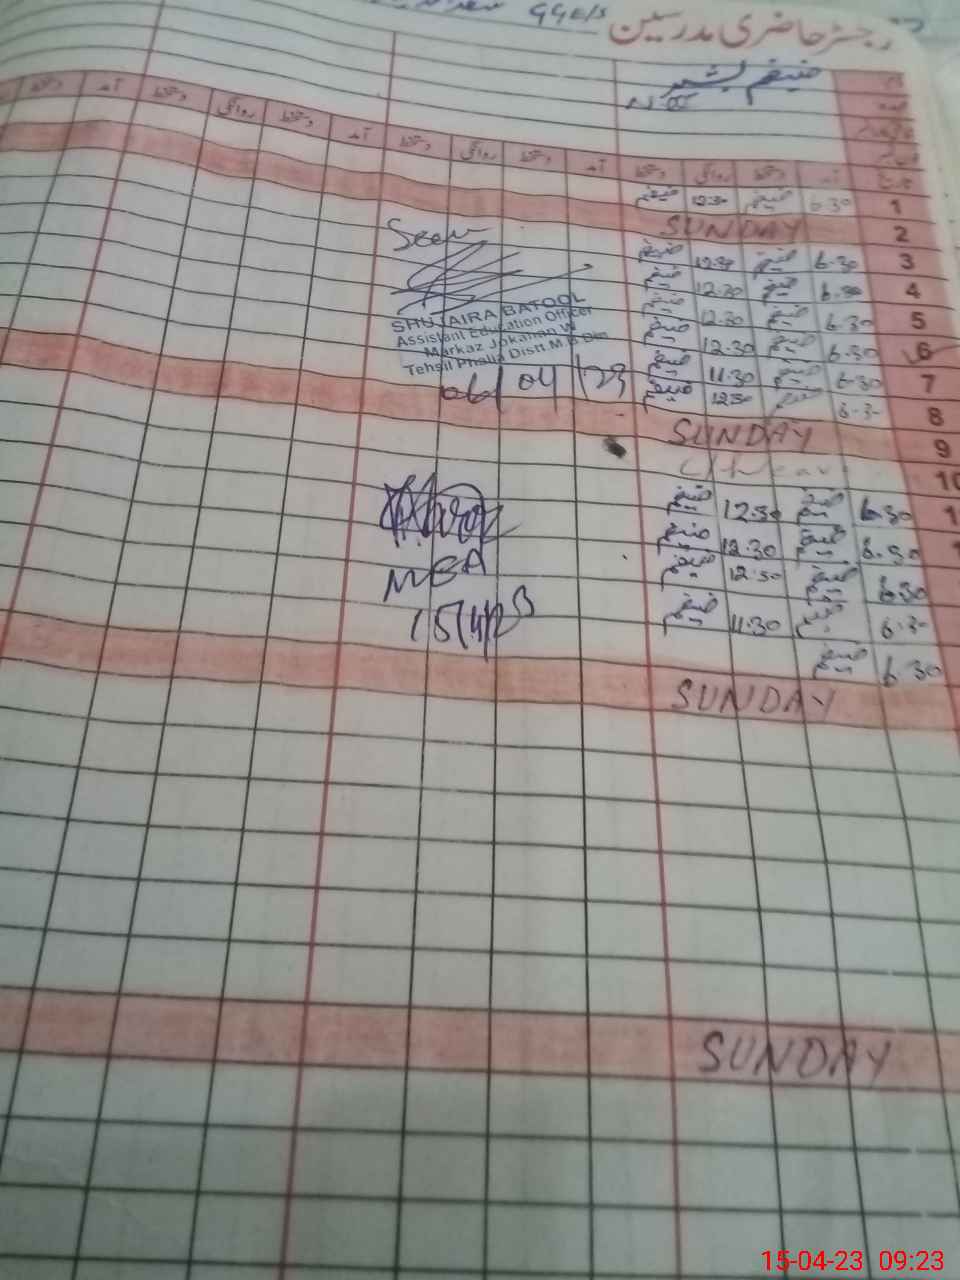 GGE/S
رجسٹر حاضری مدرسین
ضیغم بشیر
نام
عہدہ
تاریخ آمد دستخط روانگی دستخط آمد دستخط روانگی دستخط آمد دستخط روانگی دستخط آمد دستخط
1 6.30 ضیغم 12.30 ضیغم
2 SUNDAY
3 6.30 ضیغم 12.30 ضیغم
4 6.30 ضیغم 12.30 ضیغم
5 6.30 ضیغم 12.30 ضیغم
6 6.30 ضیغم 12.30 ضیغم
7 6.30 ضیغم 11.30 ضیغم
8 6.3 ضیغم 12.30 ضیغم
9 SUNDAY
10 C/Leave
1 6.30 ضیغم 12.30 ضیغم
1 6.30 ضیغم 12.30 ضیغم
6.30 ضیغم 12.30 ضیغم
6.30 ضیغم 11.30 ضیغم
6.30 ضیغم
SUNDAY
SUNDAY
Seen
SHUJAIRA BATOOL
Assistant Education Officer
Markaz Jokanan W
Tehsil Phalia Distt M.B Din
06/04/23
MEA
15/4/23
15-04-23 09:23